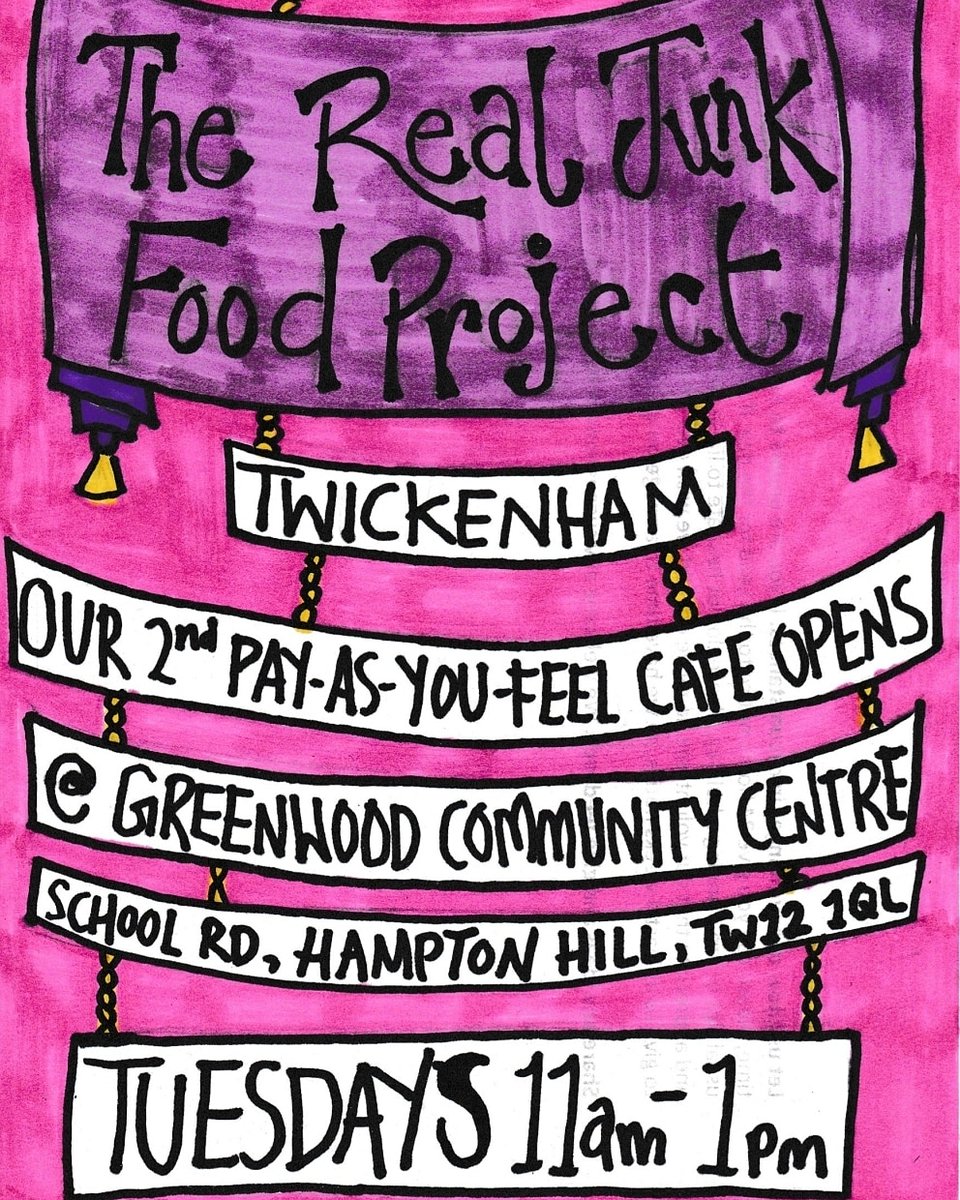 The Real Junk
Food Project
TWICKENHAM
OUR 2nd PAY-AS-YOU-FEEL CAFE OPENS
@ GREENWOOD COMMUNITY CENTRE
SCHOOL RD, HAMPTON HILL, TW12 1QL
TUESDAY'S 11am - 1pm